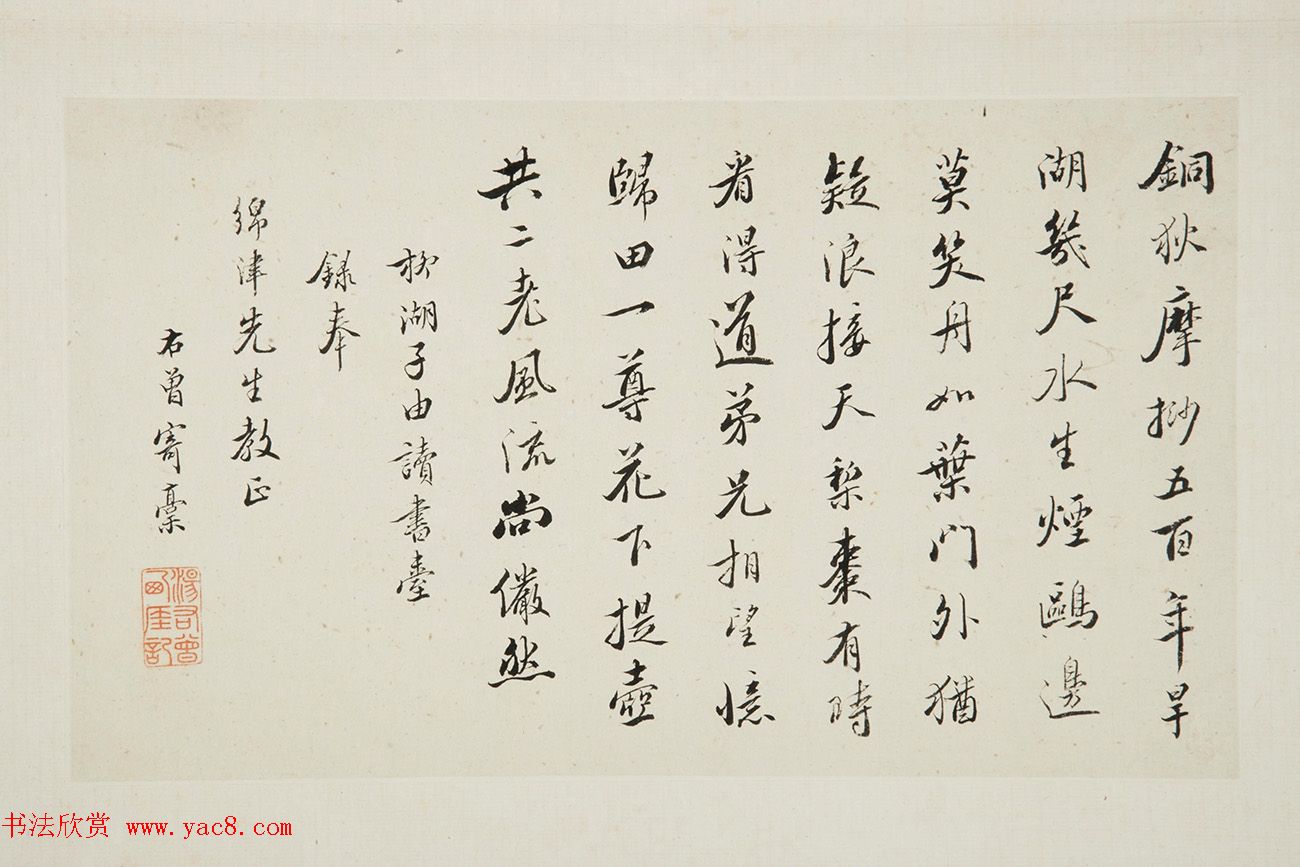 銅狄摩挱五百年旱
湖幾尺水生煙鷗邊
莫笑舟如葉門外猶
疑浪接天梨棗有時
看得道弟兄相望憶
歸田一尊花下提壺
共二老風流尚儼然
湖子由讀書臺
錄奉
綿津先生教正
右曾寄稾
湯右曾
西厓記
书法欣赏 www.yac8.com